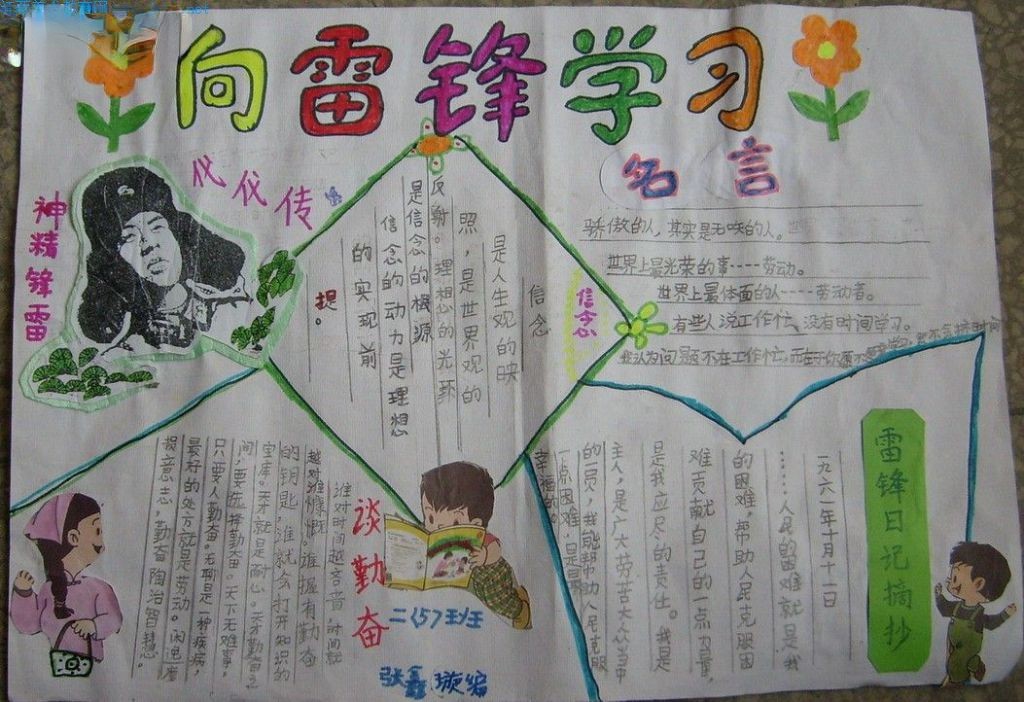 向雷锋学习
神精锋雷
代代传
名言
骄傲的人，其实是无
世界上最光荣的事----劳动。
世界上最体面的人----劳动者。
有些人说工作忙、没有时间学习。
我认为问题不在工作忙，而在于你愿不愿意学习，会不会挤时间
信念
信念
是人生观的映
照，是世界观的
反射。理想的光环
是信念的根源
信念的动力是理想
的实现前
提。
雷锋日记摘抄
一九六一年十月十一日
……人民的困难就是我
的困难，帮助人民克服困
难贡献自己的一点力量，
是我应尽的责任。我是
主人，是广大劳苦大众当中
的一员，我能帮助人民克服
一点困难，是最
幸福的。
谈勤奋
谁对时间越吝啬，时间就
越对谁慷慨。谁握有勤奋
的钥匙，谁就会打开知识的
宝库。天才就是耐心。天才勤奋之
间，要选择勤奋。天下无难事，
只要人勤奋。无聊是一种疾病，
最好的处方就是劳动。闲逸磨
损意志，勤奋陶治智慧。
二(5)班
张鑫璇编